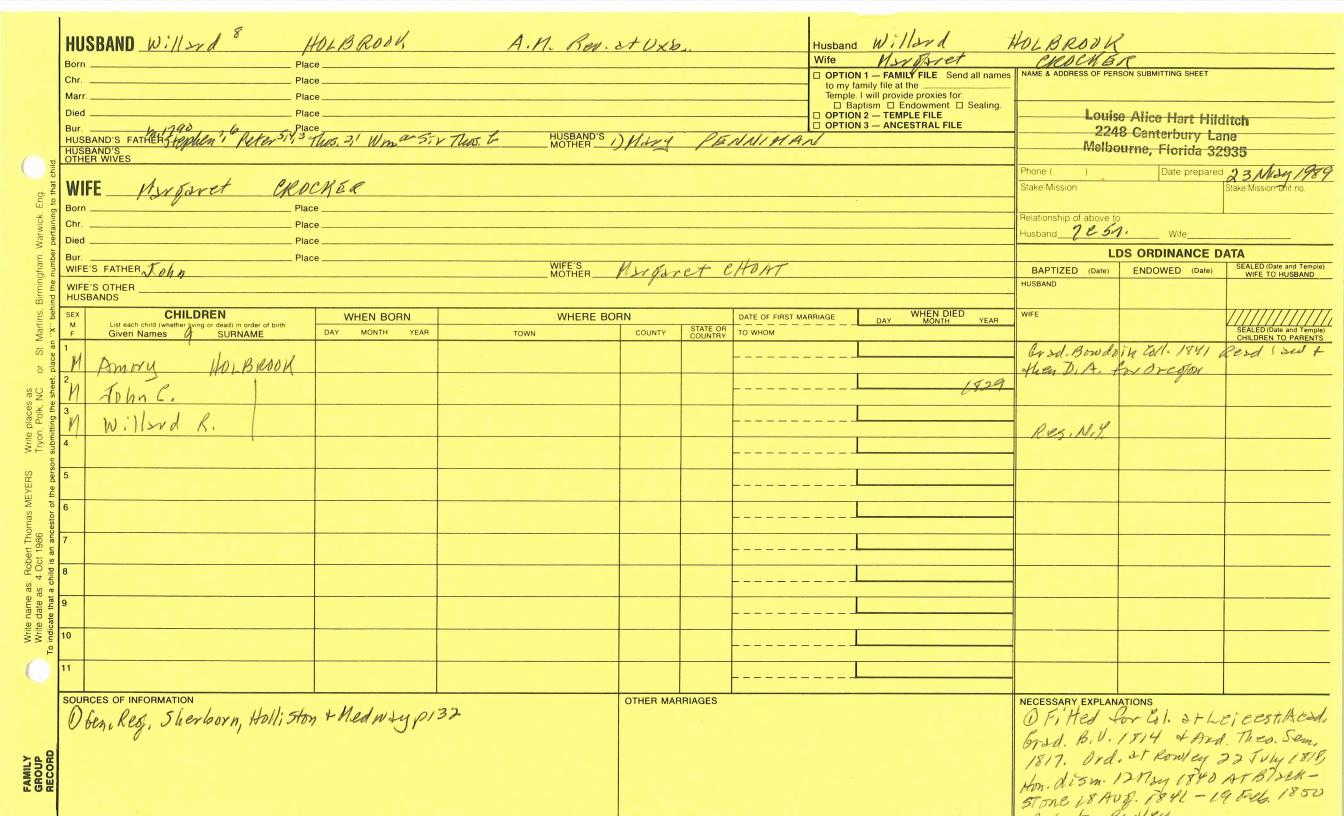 HUSBAND Willard 8 HOLBROOK A.M. Rev. at Uxb.
Born Place
Chr. Place
Marr. Place
Died Place
Bur. Place
1790
HUSBAND'S FATHER Stephen Peter Thos. Wm Thos.
HUSBAND'S MOTHER 1) Mary PENNIMAN
HUSBAND'S OTHER WIVES
WIFE Margaret CROCKER
Born Place
Chr. Place
Died Place
Bur. Place
WIFE'S FATHER John
WIFE'S MOTHER Margaret CHOAT
WIFE'S OTHER HUSBANDS
Husband Willard HOLBROOK
Wife Margaret CROCKER
OPTION 1 — FAMILY FILE Send all names
to my family file at the
Temple. I will provide proxies for:
Baptism Endowment Sealing.
OPTION 2 — TEMPLE FILE
OPTION 3 — ANCESTRAL FILE
NAME & ADDRESS OF PERSON SUBMITTING SHEET
Louise Alice Hart Hilditch
2248 Canterbury Lane
Melbourne, Florida 32935
Phone ( ) Date prepared 23 May 1989
Stake-Mission Stake-Mission unit no.
Relationship of above to
Husband Wife
LDS ORDINANCE DATA
BAPTIZED (Date) ENDOWED (Date) SEALED (Date and Temple) WIFE TO HUSBAND
HUSBAND
WIFE
SEALED (Date and Temple) CHILDREN TO PARENTS
SEX M F
CHILDREN
List each child (whether living or dead) in order of birth
Given Names 9 SURNAME
WHEN BORN
DAY MONTH YEAR
WHERE BORN
TOWN COUNTY STATE OR COUNTRY
DATE OF FIRST MARRIAGE
TO WHOM
WHEN DIED
DAY MONTH YEAR
1 M Amory HOLBROOK Grad. Bowdoin Col. 1841 Read Law +
then D.A. for Oregon
2 M John C. 1829
3 M Willard R. Res. N.Y.
4
5
6
7
8
9
10
11
SOURCES OF INFORMATION
① Gen. Reg. Sherborn, Holliston + Medway p132
OTHER MARRIAGES
NECESSARY EXPLANATIONS
① Fitted for Col. at Leicest. Acad.
Grad. B.U. 1814 + And. Theo. Sem.
1817. Ord. at Rowley 22 July 1818,
Hon. dism. 12 May 1840 AT Black-
stone 18 Aug. 1841 - 19 Feb. 1850
Write name as: Robert Thomas MEYERS Write places as: Tryon, Polk, NC or St. Martins, Birmingham, Warwick, Eng.
Write date as: 4 Oct 1986
To indicate that a child is an ancestor of the person submitting the sheet, place an "X" behind the number pertaining to that child.
FAMILY
GROUP
RECORD